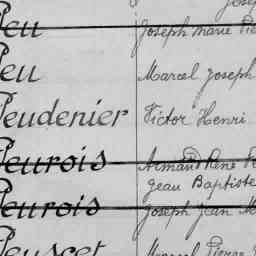 Joseph
Peu Joseph Marie
Peu Marcel Joseph
Peudenier Victor Henri
Peurois Armand René
Jean Baptiste
Peurois Joseph Jean
Peuscet Marcel Pierre